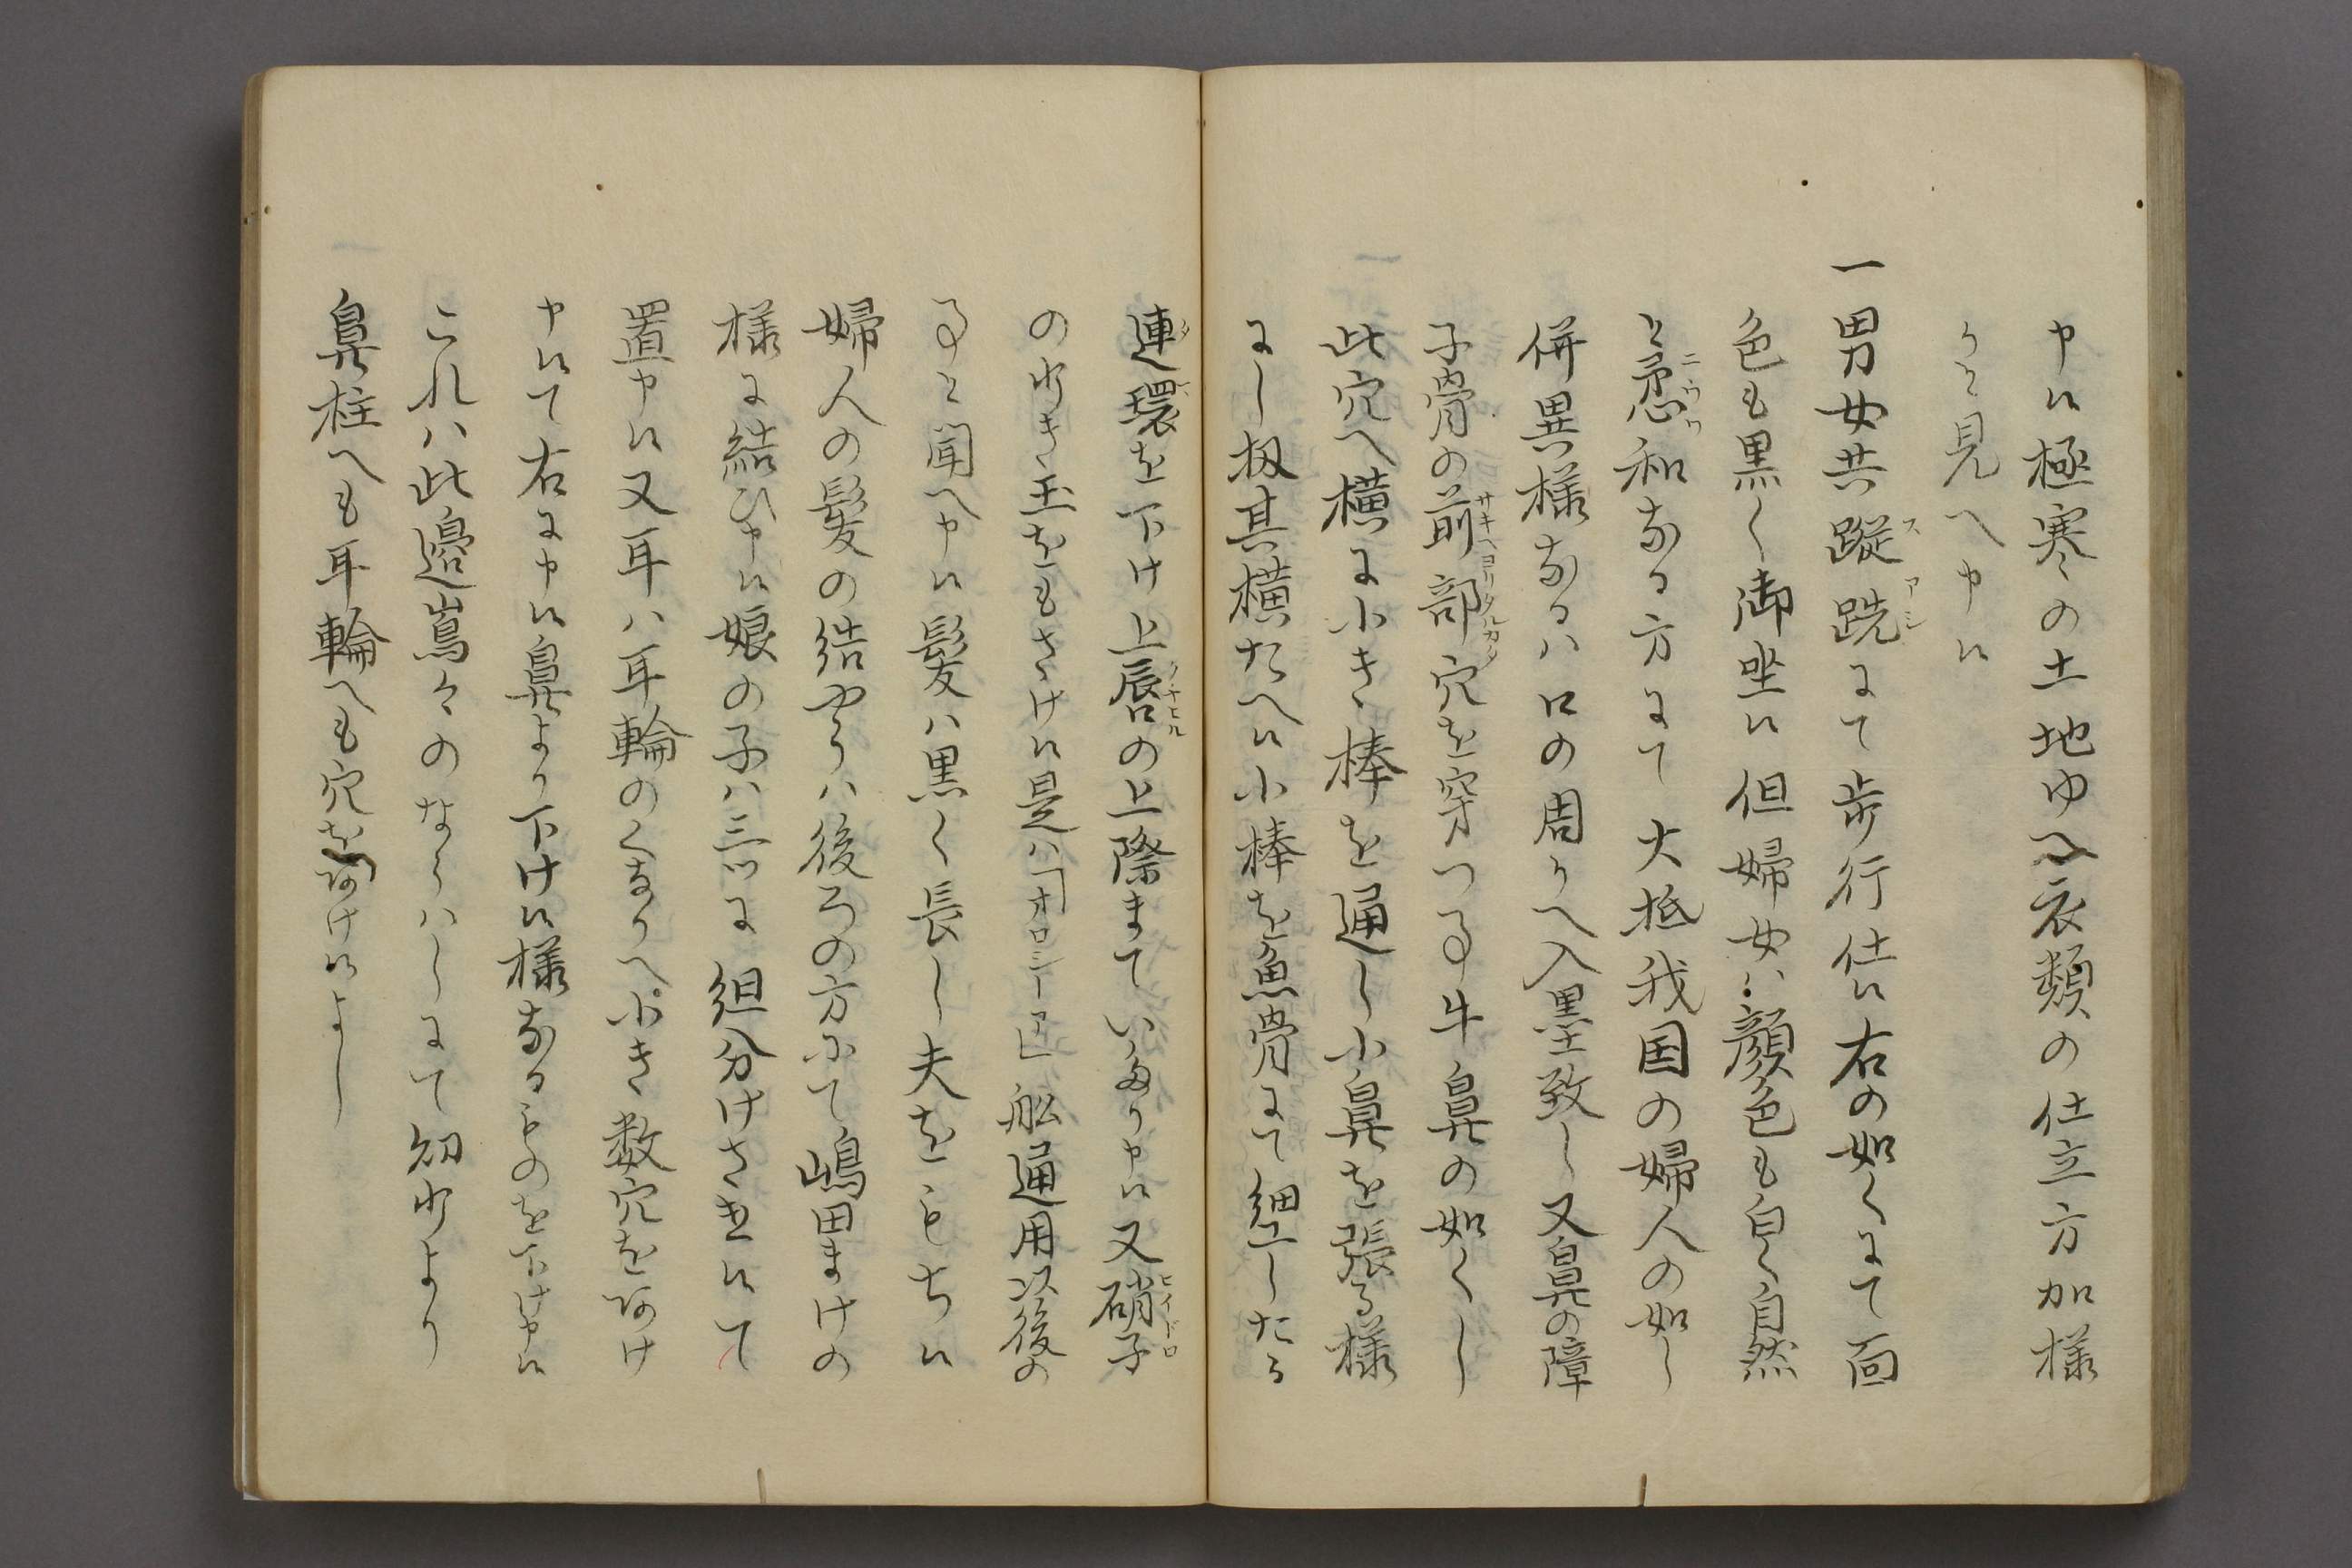 申候極寒の土地ゆへ衣類の仕立方加様
かと見へ申候
一男女共蹤跣にて歩行仕候右の如くにて面
色も黒く御坐候但婦女ハ顔色も白く自然
と柔和なる方にて大抵我国の婦人の如し
併異様なるハ口の周りへ入墨致し又鼻の障
子骨の前部穴を穿つ事牛鼻の如くし
此穴へ横に小き棒を通し小鼻を張る様
にし扨其横たへ候小棒を魚骨にて細工したる
連環を下け上唇の上際まていたり申候又硝子
の小き玉をもさけ候是ハ「オロシーア」舩通用以後の
事と聞へ申候髪ハ黒く長し夫をもち候
婦人の髪の結やうハ後ろの方にて嶋田まけの
様に結ひ申候娘の子ハ三ツに組分けさけ候て
置申候又耳ハ耳輪のくるりへ小き数穴をあけ
申候て右に申候鼻より下け候様なるものを下け申候
これハ此邊嶌々のならハしにて幼少より
鼻柱へも耳輪へも穴をあけ候よし
ス アシ
ニウワ
サキヘヨリタルカタ
クチヒル
ヒイドロ